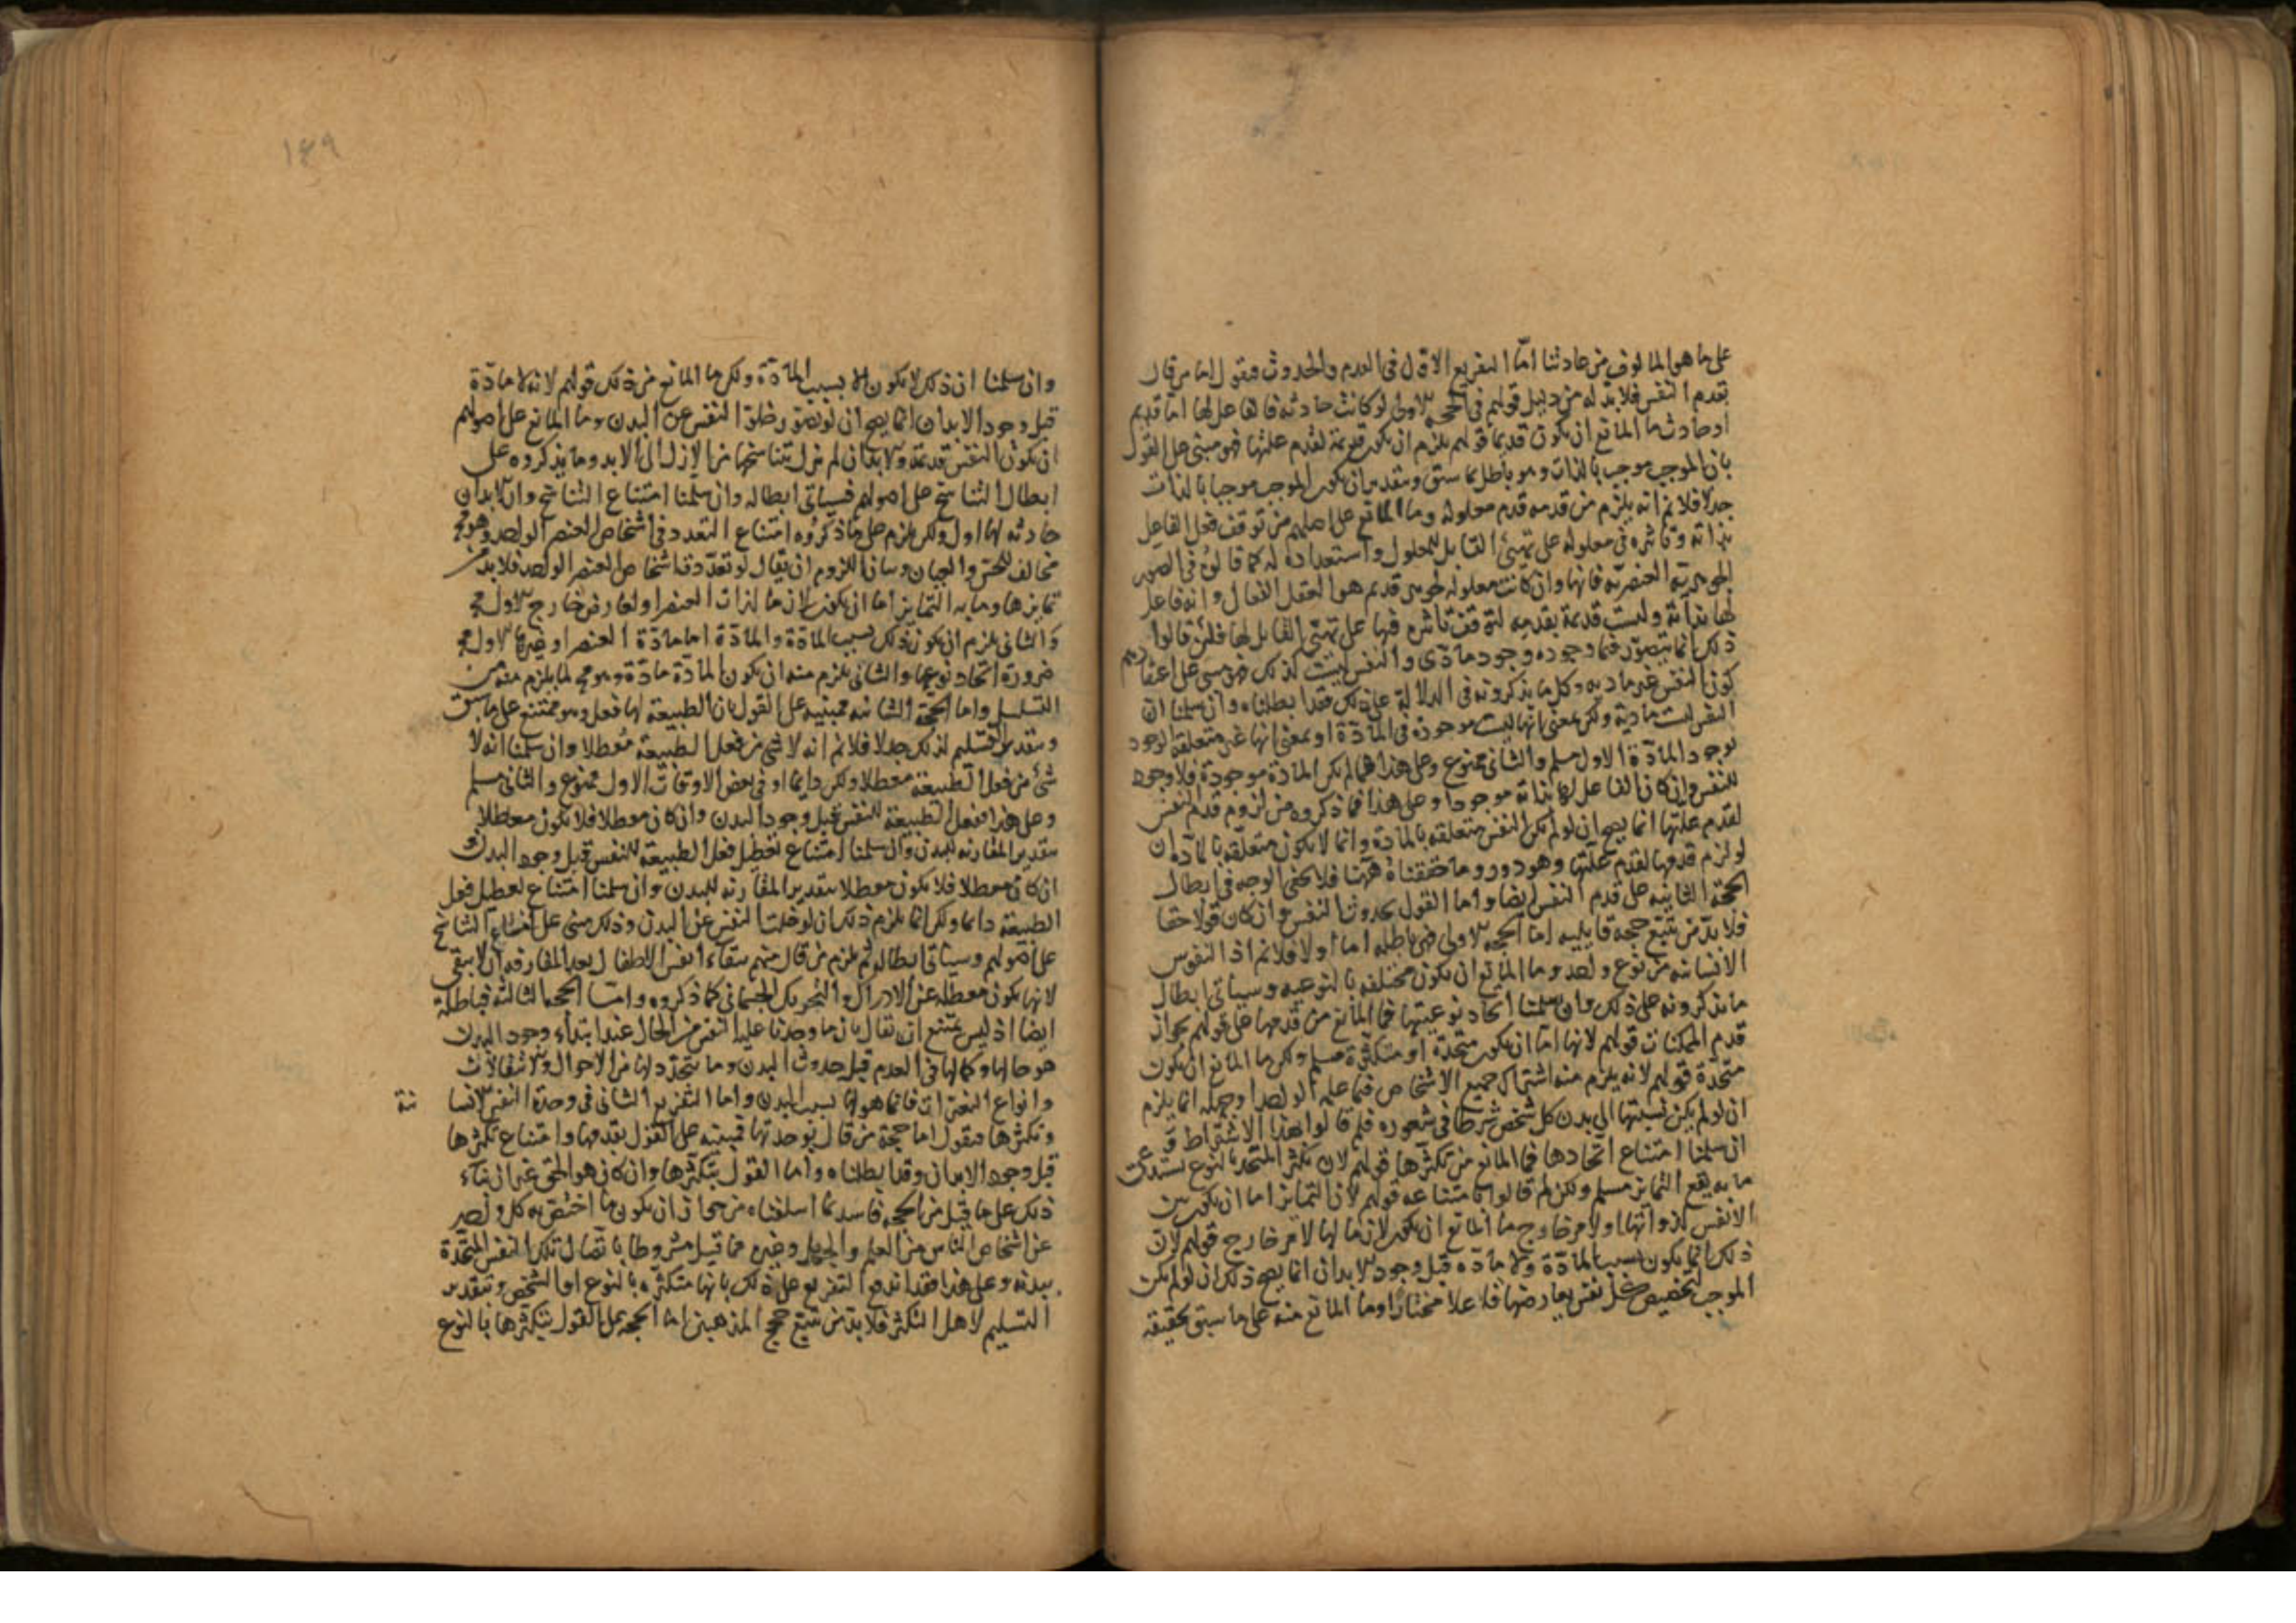 على ما هو المالوف من عادتنا امّا التفريع الاوّل فى القدم والحدوث فنقول اما من قال
بقدم النفس فلا بدّ له من دليل قولهم فى الحجه الاولى لو كانت حادثه فالفاعل لها امّا قديم
او حادث ما المانع ان يكون قديما قولهم يلزم ان يكون قديمة لقدم علتها فهو مبنى على القول
بان الموجب موجب بالذات وهو باطل بما سبق وبتقدير ان يكون الموجب موجبا بالذات
جدلا فلا نم انه يلزم من قدمه قدم معلوله وما المانع على اصلهم من توقف فعل الفاعل
بذاته وتاثيره فى معلوله على تهيئ القابل للمعلول واستعداده له كما قالوه فى الصور
الجوهرية العنصريّة فانها وان كانت معلوله لجوهر قديم هو العقل الفعال وانه فاعل
لها بذاته وليست قديمة بقدمه لتوقف تاثيره فيها على تهيّئ القابل لها فلئن قالوا
ذلك انما يتصوّر فيما وجوده وجود مادّى والنفس ليست كذلك فهو مبنى على اعتقادهم
كون النفس غير ماديه وكل ما يذكرونه فى الدلالة على ذلك فقد ابطلناه وان سلمنا انّ
النفس ليست مادية ولكن بمعنى انها ليست موجودة فى المادّة او بمعنى انها غير متعلقة الوجود
بوجود المادّة الاول مسلم والثانى ممنوع وعلى هذا فما لم تكن المادة موجودة فلا وجود
للنفس وان كان الفاعل لها بذاته موجودا وعلى هذا فما ذكروه من لزوم قدم النفس
لقدم علتها انما يصح ان لو لم تكن النفس متعلقه بالمادة وانما لا يكون متعلقه بالمادة ان
لو لزم قدمها لقدم علّتها وهو دور وما حققناه ههنا فلا يخفى الوجه فى ابطال
الحجّة الثانيه على قدم النفس ايضا واما القول بحدوث النفس وان كان قولا حقا
فلا بدّ من تتبّع حجة قايليه امّا الحجه الاولى فهى باطله اما اولا فلا نم انّ النفوس
الانسانيه من نوع واحد وما المانع ان يكون مختلفه بالنوعيه وسيأتى ابطال
ما يذكرونه على ذلك وان سلمنا اتحاد نوعيتها فما المانع من قدمها على قولهم بجواز
قدم الممكنات قولهم لانها امّا ان يكون متحدة او متكثّرة مسلم ولكن ما المانع ان يكون
متحّدة قولهم لانه يلزم منه اشتراك جميع الاشخاص فيما علمه الواحد او جهله انما يلزم
ان لو لم يكن نسبتها الى بدن كل شخص شرطا فى شعوره فلم قالوا بعدم الاشتراط و
ان سلمنا امتناع اتّحادها فما المانع من تكثّرها قولهم لانّ تكثّر المتّحد بالنوع يستدعى
ما به يقع التمايز مسلم ولكن لم قالوا بامتناعه قولهم لانّ التمايز اما ان يكون بين
الانفس لذواتها او لامر خارج ما المانع ان يكون لازما لها لامر خارج قولهم لانّ
ذلك انما يكون بسبب المادّة ولا مادّه قبل وجود الابدان انما يصح ذلك ان لو لم يكن
الموجب لتخصيص كل نفس بعارضها فاعلا مختارًا وما المانع منه على ما سبق تحقيقه
١٤٩
وان سلمنا ان ذلك لا يكون الا بسبب المادّة ولكن ما المانع من ذلك قولهم لانه لا مادّة
قبل وجود الابدان انما يصح ان لو تصوّر خلوّ النفس عن البدن وما المانع على اصولهم
ان يكون النفس قديمة والابدان لم تزل يتناسخها من الازل الى الابد وما يذكروه على
ابطال التناسخ على اصولهم فسيأتى ابطاله وان سلمنا امتناع التناسخ وان الابدان
حادثه لها اول ولكن يلزم على ما ذكروه امتناع التعدد فى اشخاص العنصر الواحد وهو مح
مخالف للحسّ والعيان وبيان اللزوم ان يقال لو تعدّدت اشخاص العنصر الواحد فلا بد من
تمايزها وما به التمايز امّا ان يكون لازما لذات العنصر او لعارض خارج الاول مح
والثانى يلزم ان يكون ذلك بسبب المادّة والمادّة اما مادّة العنصر او غيرها الاول مح
ضرورة اتحاد نوعها والثانى يلزم منه ان يكون للمادّة مادّة وهو مح لما يلزم منه من
التسلسل واما الحجّة الثانيه فمبنيه على القول بان الطبيعة لها فعل وهو ممتنع على ما سبق
وبتقدير التسليم لذلك جدلا فلا نم انه لا شى من فعل الطبيعة مُعطلا وان سلمنا انه لا
شئ من فعل الطبيعة معطلا ولكن دايما او فى بعض الاوقات الاول ممنوع والثانى مسلم
وعلى هذا ففعل الطبيعة للنفس قبل وجود البدن وان كان معطلا فلا يكون معطلا
بتقدير المقارنه للبدن وان سلمنا امتناع تعطيل فعل الطبيعة للنفس قبل وجود البدن و
ان كان معطلا فلا يكون معطلا بتقدير المقارنه للبدن وان سلمنا امتناع تعطيل فعل
الطبيعة دايما ولكن انما يلزم ذلك ان لو خلت النفس عن البدن وذلك مبنى على امتناع التناسخ
على اصولهم وسيأتى ابطاله ثم يلزم من قال منهم ببقاء انفس الاطفال بعد المفارقه ان لا يبقى
لانها يكون معطلة عن الادراك والتحريك الجسمانى كما ذكروه وامّا الحجه الثالثه فباطلة
ايضا اذ ليس يمتنع ان يقال بان ما وجدنا عليه النفس من الحال عند ابتداء وجود البدن
هو حالها وكمالها فى القدم قبل حدوث البدن وما يتجدّد لها من الاحوال والانتقالات
وانواع التغيّرات فانما هو لها بسبب البدن وامّا التفريع الثانى فى وحدة النفس الانسا نية
وتكثّرها فنقول امّا حجة من قال بوحدتها فمبنيه على القول بقدمها وامتناع تكثّرها
قبل وجود الابدان وقد ابطلناه وامّا القول بتكثّرها وان كان هو الحقّ غير ان بناء
ذلك على ما قيل من الحجه فاسد بما اسلفناه من جواز ان يكون ما اختصّ به كل واحد
من اشخاص الناس من العلم والجهل وغيره مما قيل مشروطا باتصال تلك النفس المتحّدة
ببدنه وعلى هذا فقد اندفع التفريع على ذلك بانها متكثّره بالنوع او الشخص وبتقدير
التسليم لاهل التكثّر فلا بد من تتبّع حجج المذهبين امّا الحجه على القول بتكثّرها بالنوع